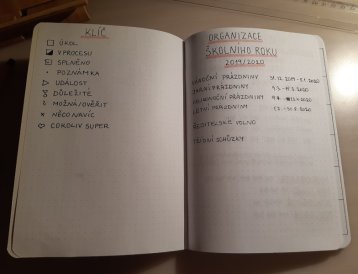 KLÍČ
ÚKOL
V PROCESU
SPLNĚNO
POZNÁMKA
UDÁLOST
DŮLEŽITÉ
MOŽNÁ/OVĚŘIT
NĚCO NAVÍC
COKOLIV SUPER
ORGANIZACE
ŠKOLNÍHO ROKU
2019/2020
VÁNOČNÍ PRÁZDNINY
JARNÍ PRÁZDNINY
VELIKONOČNÍ PRÁZDNINY
LETNÍ PRÁZDNINY
ŘEDITELSKÉ VOLNO
TŘÍDNÍ SCHŮZKY